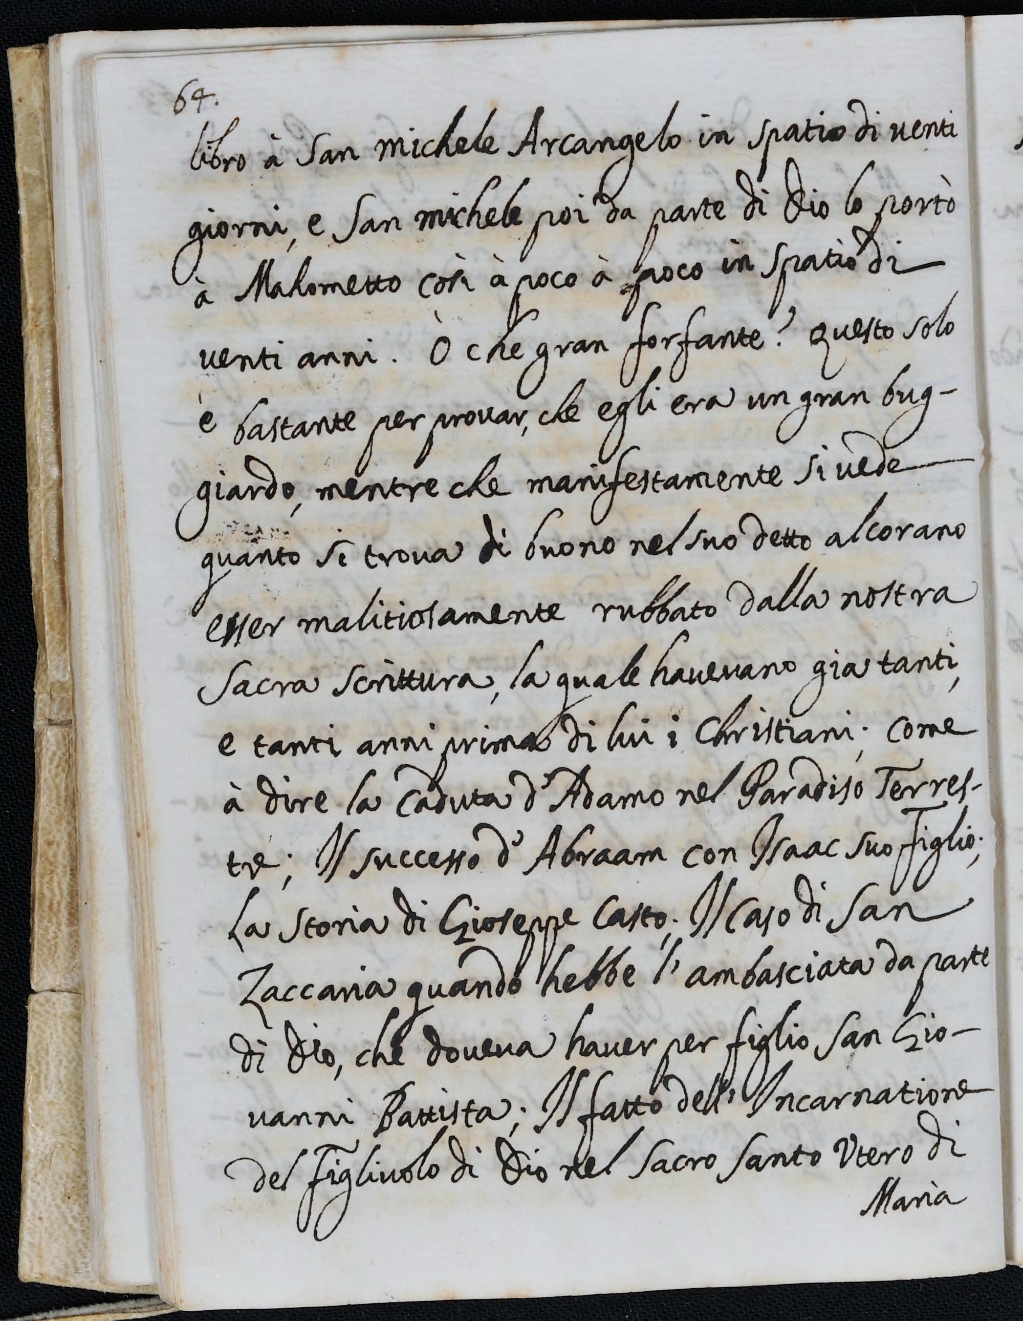 64.
libro à San Michele Arcangelo in spatio di venti
giorni, e San Michele poi da parte di Dio lo portò
à Mahometto così à poco à poco in spatio di
venti anni. Ò che gran forfante! Questo solo
è bastante per provar, che egli era un gran bug-
giardo, mentre che manifestamente si vede
quanto si trova di buono nel suo detto alcorano
esser malitiosamente rubbato dalla nostra
Sacra Scrittura, la quale havevano gia tanti,
e tanti anni prima di lui i Christiani; come
à dire la Caduta d'Adamo nel Paradiso Terres-
tre; Il successo d'Abraam con Isaac suo Figlio;
La storia di Gioseppe Casto; Il Caso di San
Zaccaria quando hebbe l'ambasciata da parte
di Dio, che doveva haver per figlio San Gio-
vanni Battista; Il fatto dell'Incarnatione
del Figlivolo di Dio nel Sacro Santo Utero di
Maria